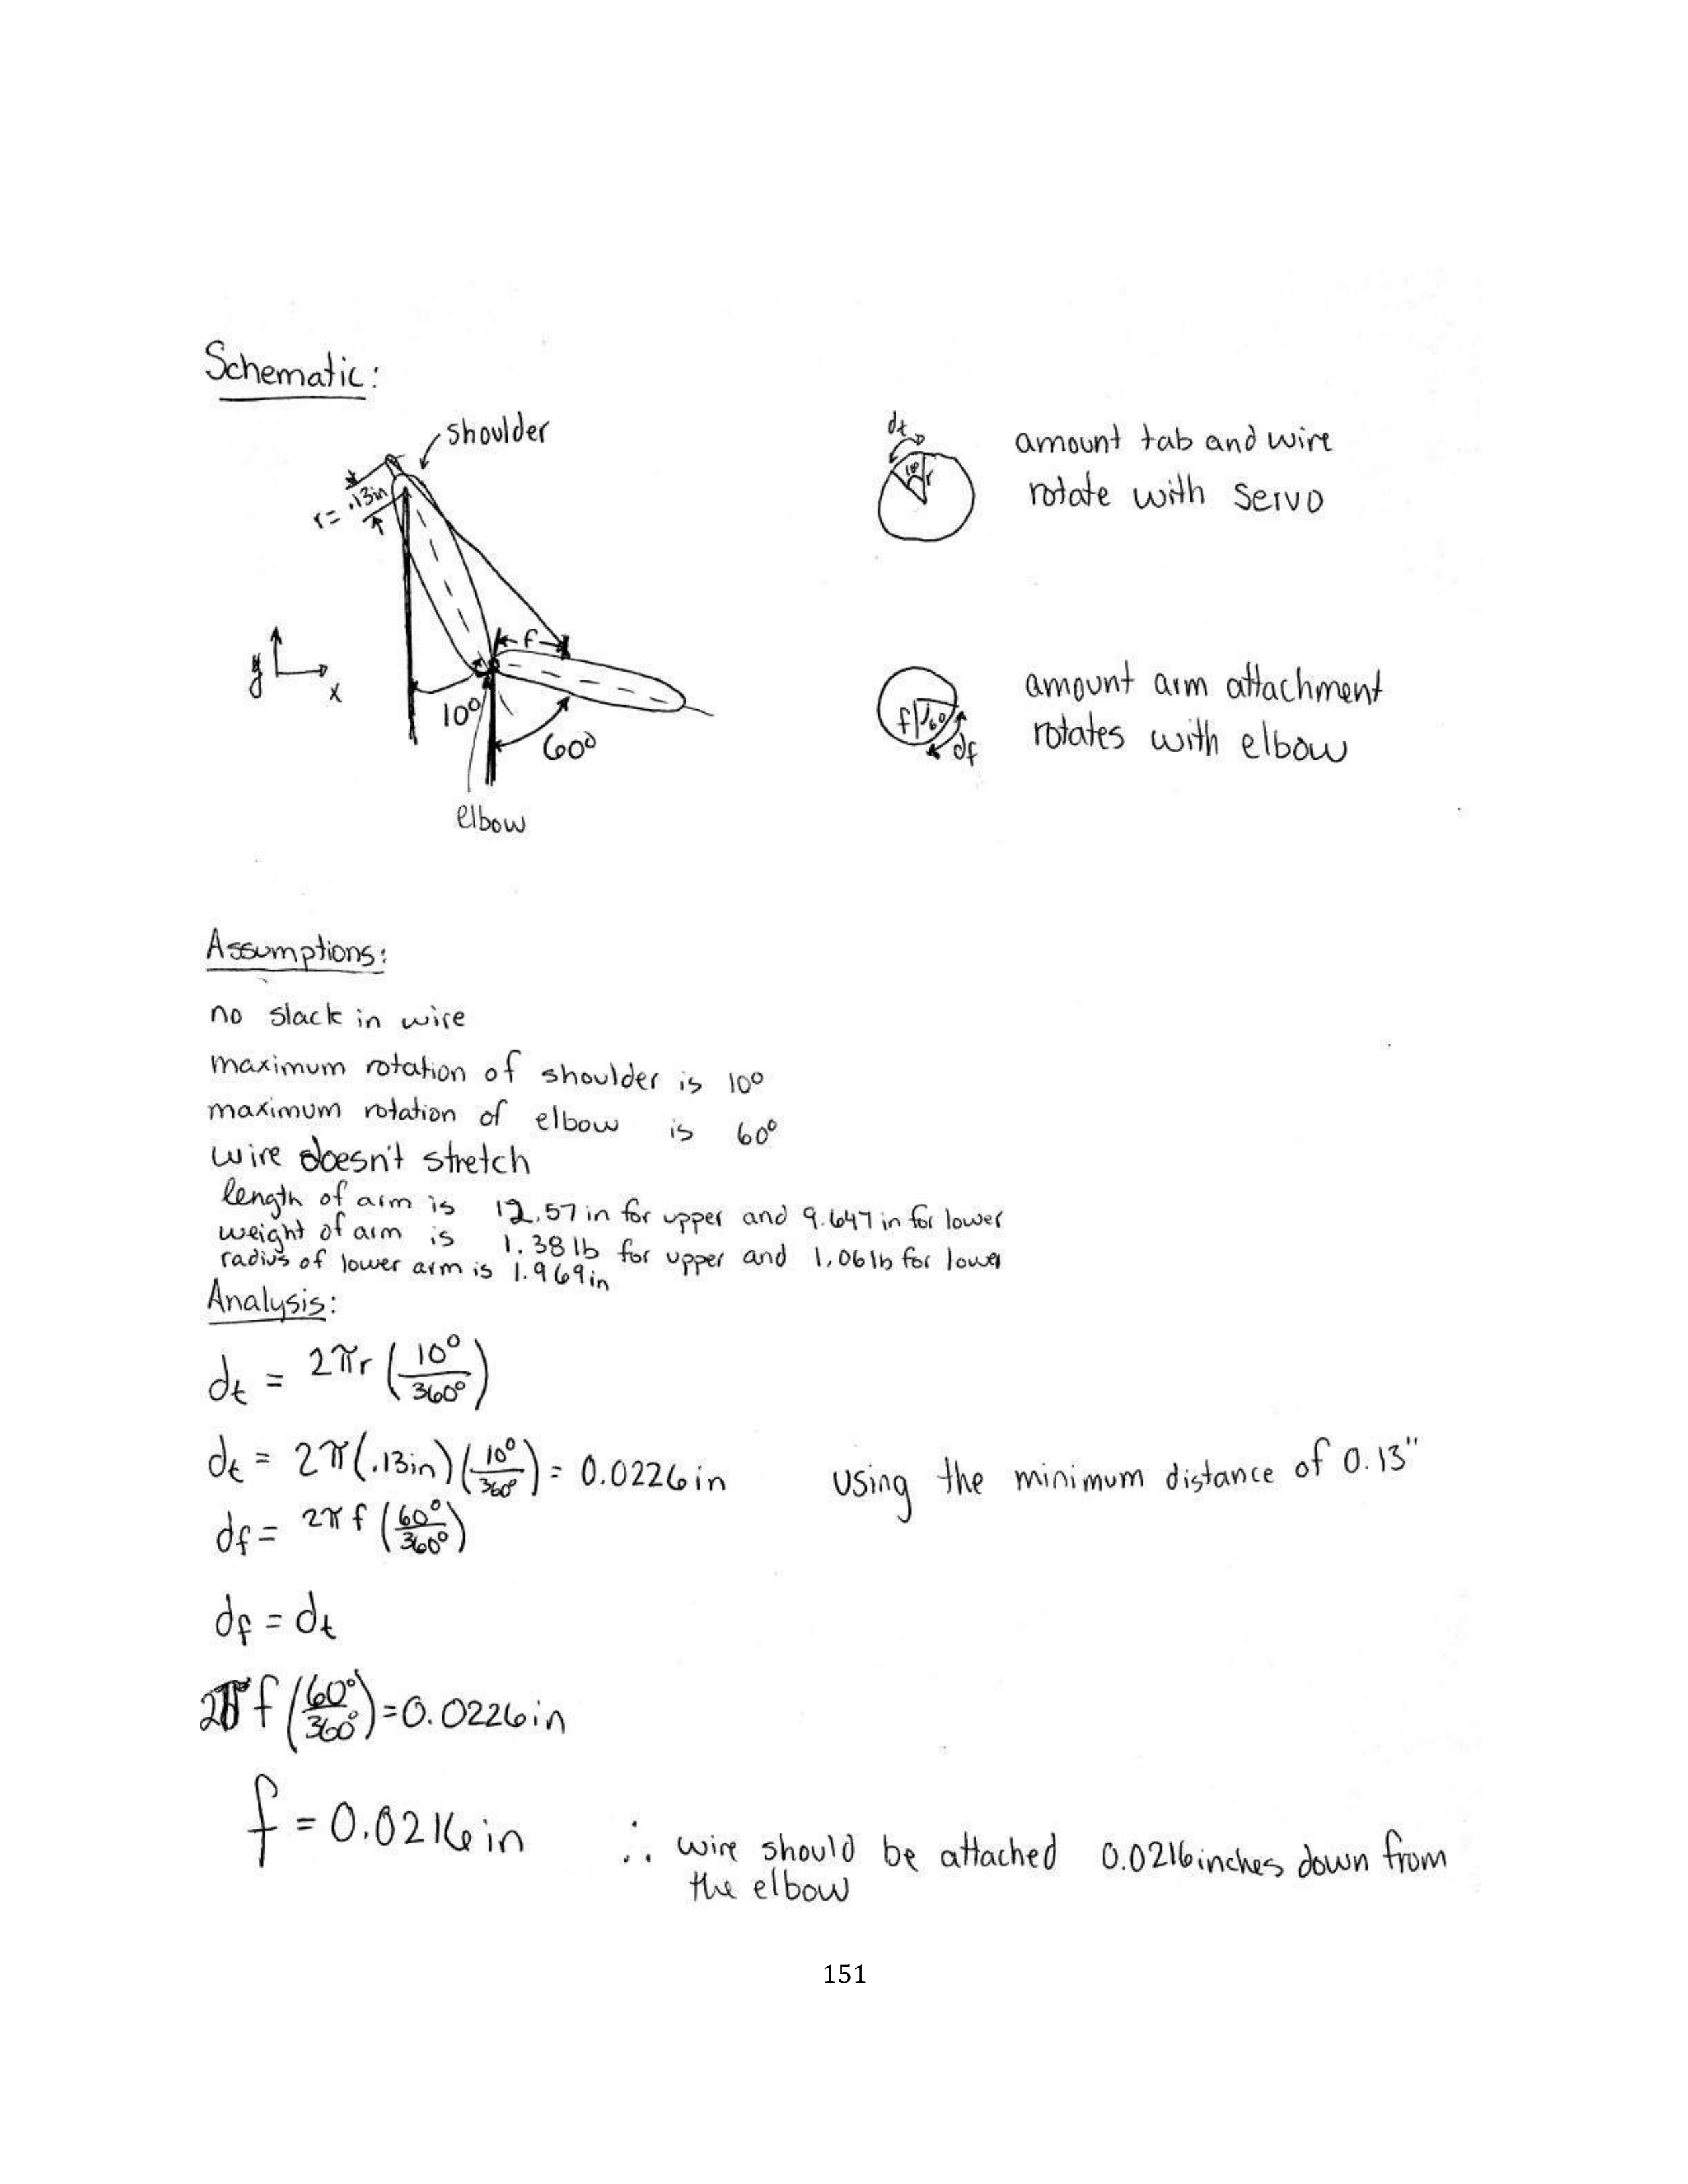 Schematic:
shoulder
r= .13in
f
10°
60°
elbow
y
x
dt
10°
r
amount tab and wire
rotate with servo
f
60
df
amount arm attachment
rotates with elbow
Assumptions:
no slack in wire
maximum rotation of shoulder is 10°
maximum rotation of elbow is 60°
wire doesn't stretch
length of arm is 12.57 in for upper and 9.647 in for lower
weight of arm is 1.38 lb for upper and 1.06 lb for lower
radius of lower arm is 1.969in
Analysis:
dt = 2πr (10°/360°)
dt = 2π(.13in)(10°/360°) = 0.0226in using the minimum distance of 0.13"
df = 2πf (60°/360°)
df = dt
2πf (60°/360°)=0.0226in
f = 0.0216in ∴ wire should be attached 0.0216inches down from
the elbow
151